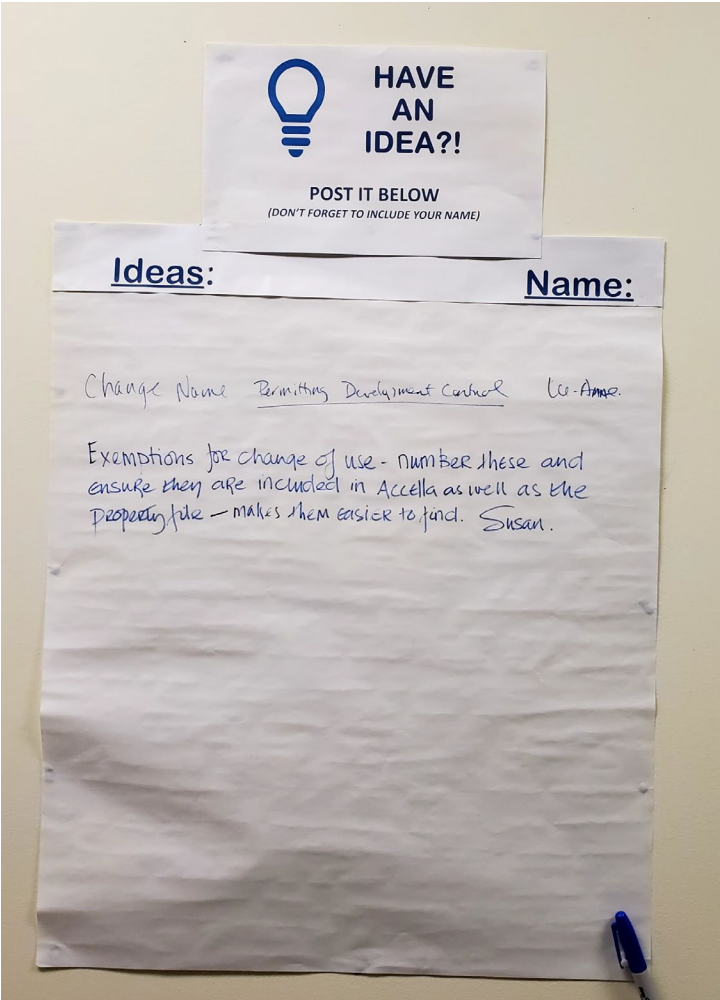 HAVE
AN
IDEA?!
POST IT BELOW
(DON'T FORGET TO INCLUDE YOUR NAME)
Ideas: Name:
Change Name Permitting Development Control Le-Anne.
Exemptions for change of use - number these and
ensure they are included in Accella as well as the
property file - makes them easier to find. Susan.